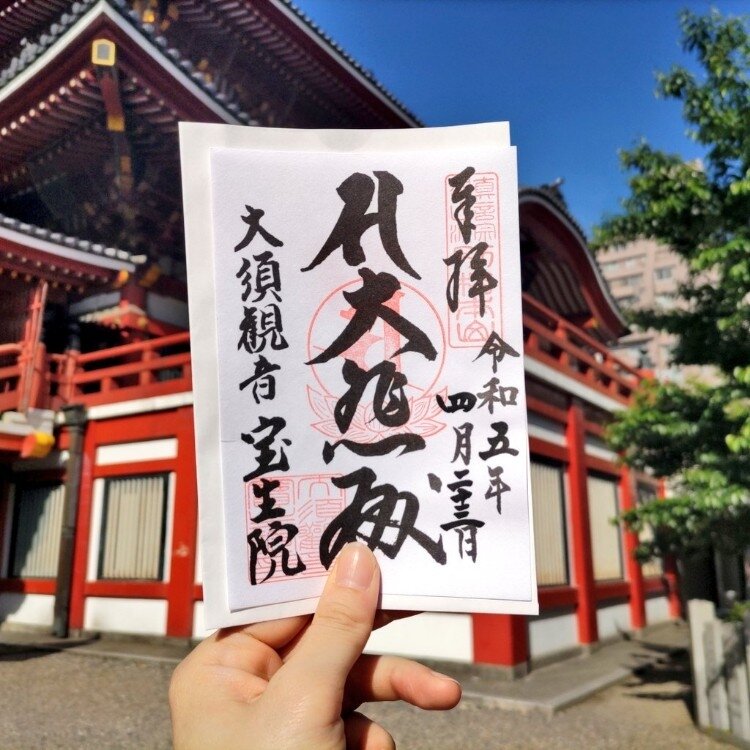 奉拝
令和五年
四月二十三日
大悲殿
大須観音
宝生院